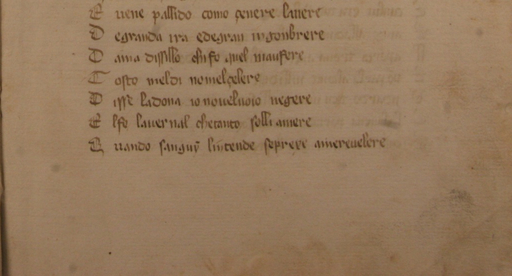 E uene pallido como çenere lauere
D egranda ira edegran ingonbrere
D ama dissillo chifo quel maufere
T osto meldi nomelçelere
D isse ladona io noveluoio negere
E lfo lauernal chetanto solli amere
Q uando sanguī lintende seprese amereuelere